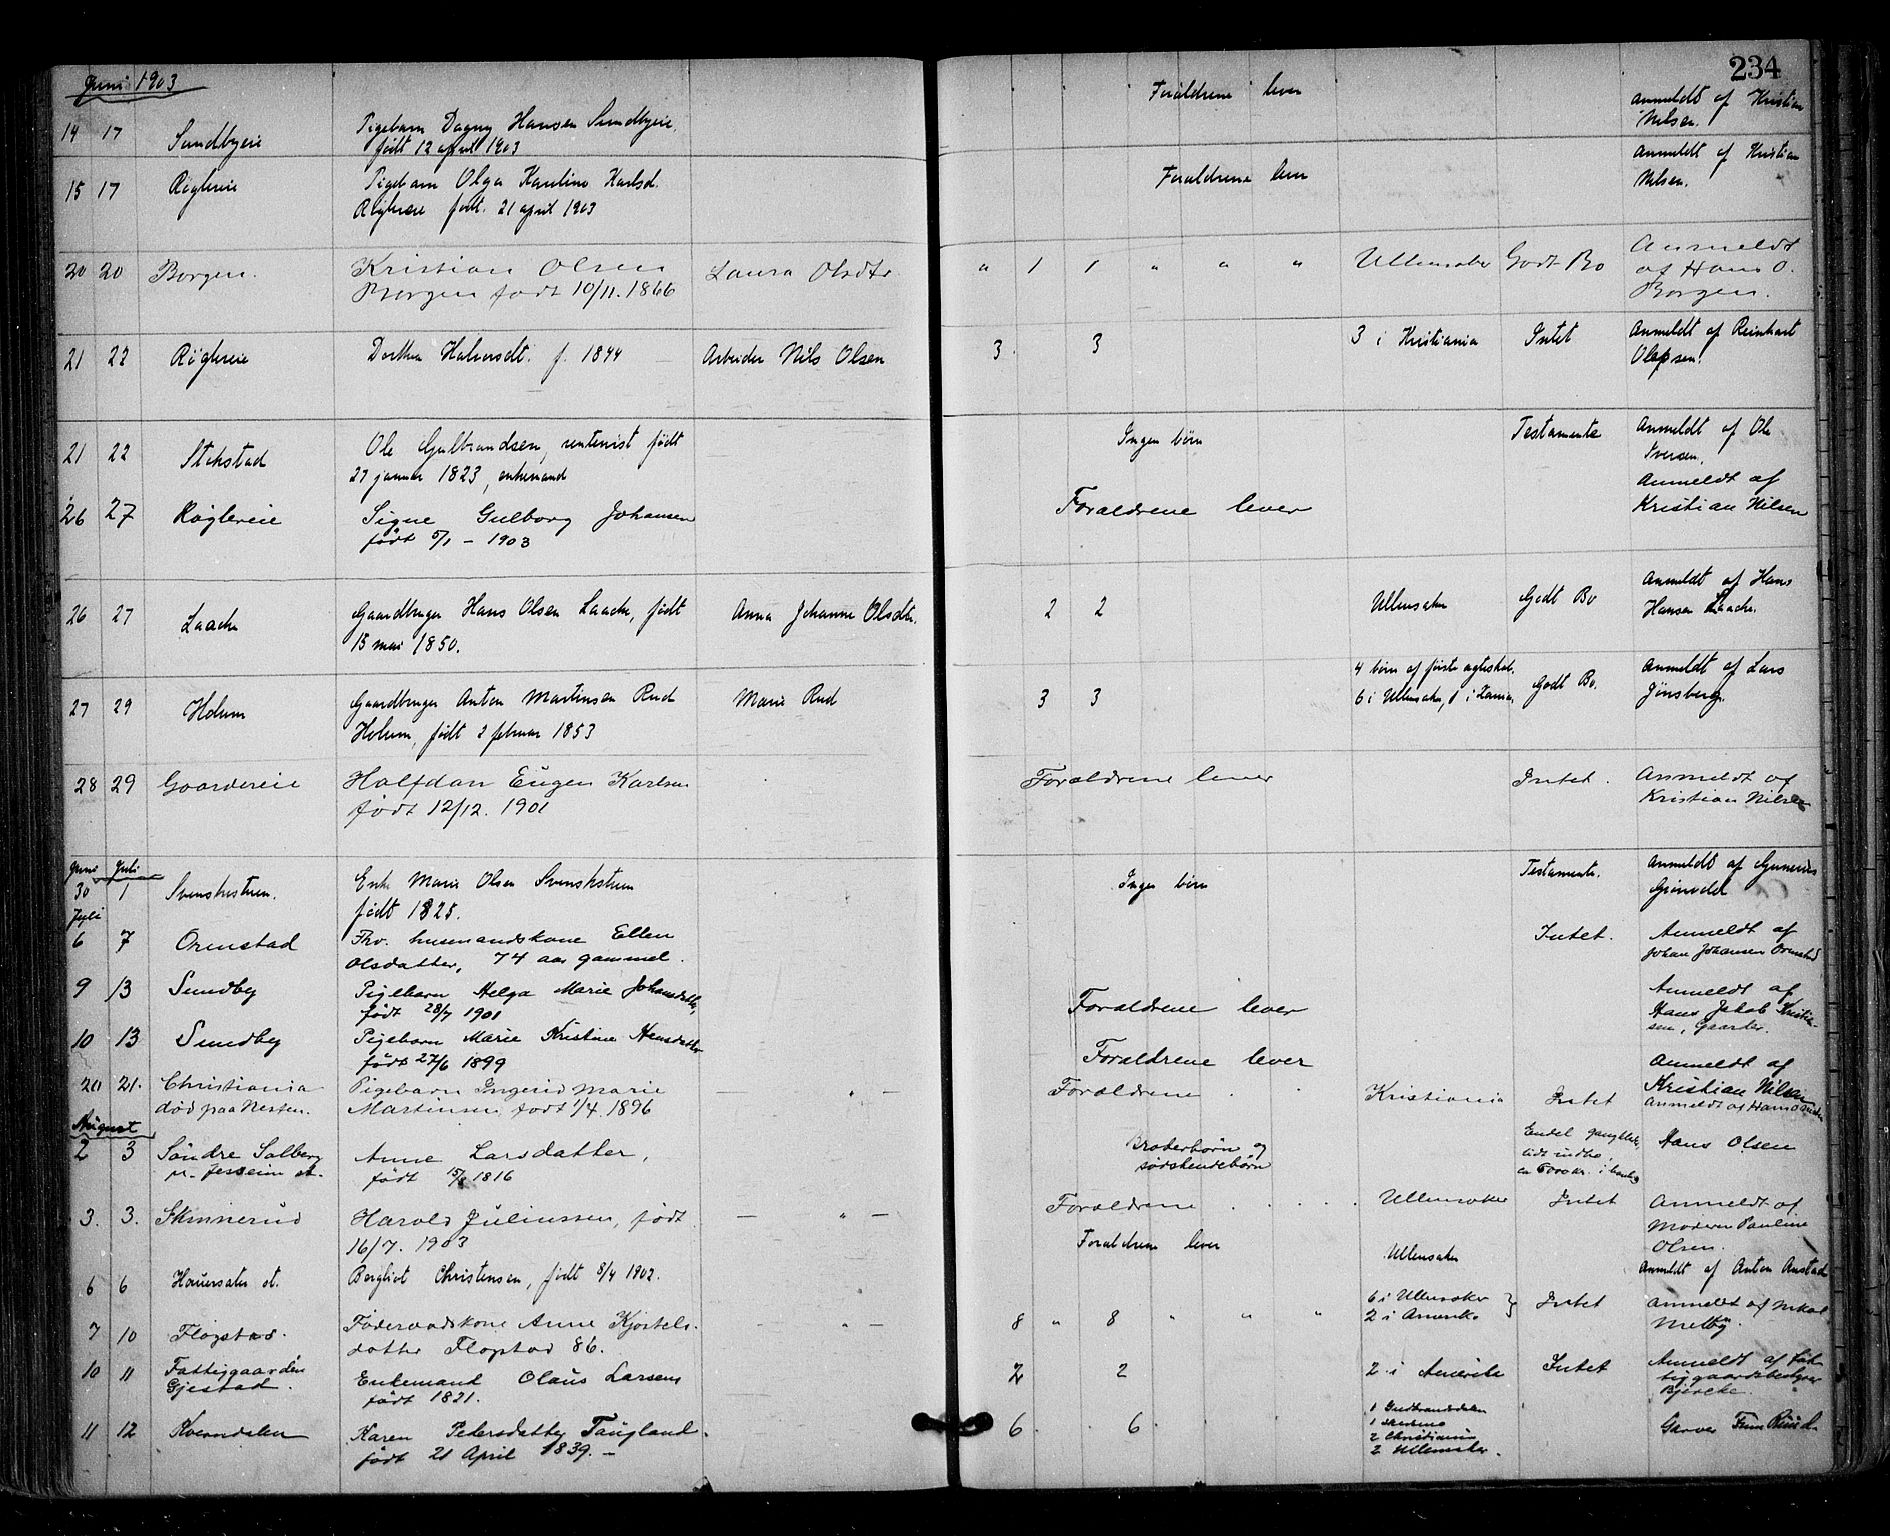 Juni 1903
234
14 17 Sundbyeie Pigebarn Dagny Hansen Sundbyeie, Forældrene lever Anmeldt af Kristian
født 12 april 1903 Nilsen.
15 17 Røglereie Pigebarn Olga Karline Karlsd. Forældrene lever Anmeldt af Kristian
Røglereie født. 21 april 1903 Nilsen.
20 20 Borgen. Kristian Olsen Laura Olsdtr " 1 1 " " " Ullensaker Godt Bo Anmeldt
Borgen født 10/11. 1866 af Hans O.
Borgen.
21 22 Røglereie Dorthea Halvorsdt. f. 1844 Arbeider Nils Olsen 3. 3 3 i Kristiania Intet Anmeldt af Reinhart
Olafsen.
21 22 Stokstad Ole Gulbrandsen, rentenist født Ingen børn Testamente Anmeldt af Ole
27 januar 1823, enkemand Iversen.
26 27 Røglereie Signe Gulborg Johansen Forældrene lever Anmeldt af
født 5/1 - 1903 Kristian Nilsen
26 27 Laache Gaardbruger Hans Olsen Laache, født Anna Johanne Olsdtr. 2 2 Ullensaker Godt Bo Anmeldt af Hans
15 mai 1850. Hansen Laache.
27 29 Holum Gaardbruger Anton Martinsen Rud Marie Rud 3 3 4 børn af første ægteskab. Godt Bo. Anmeldt af Lars
Holum, født 2 februar 1853 6 i Ullensaker, 1 i Jønsberg.
28 29 Gaardereie Halfdan Eugen Karlsen Forældrene lever Intet. Anmeldt af
født 12/12. 1901 Kristian Nilsen
Juni Juli
30 1 Svenskestuen. Enke Marie Olsen Svenskstuen Ingen børn Testamente. Anmeldt af
født 1825.
Juli
6 7 Ormstad Fhv. husmandskone Ellen Intet. Anmeldt af
Olsdatter, 74 aar gammel. Johan Johansen Ormstad
9 13 Sundby Pigebarn Helga Marie Johansdatter, Forældrene lever Anmeldt af
født 28/7 1901 Hans Jakob Kristian-
sen, Gaarder.
10 13 Sundby Pigebarn Marie Kristine Hansdatter Forældrene lever Anmeldt af
født 27/6 1899 Kristian Nilsen
20 21. Christiania Pigebarn Ingerid Marie — " — Forældrene Kristiania Intet Anmeldt af
død paa Nesten. Martinsen født 1/4. 1896
August
2 3 Søndre Solberg Anne Larsdatter, Broderbørn og Endel Hans Olsen
pr. Jesseim st. født 1816 søskendebørn lidt indbo,
3. 3. Skinnerud Harald Juliussen, født — " — Forældrene Ullensaker Intet Anmeldt af
16/7. 1903 Moderen Pauline
Olsen.
6 6 Hauersæter st. Bergliot Christensen, født 8/4 1902. Forældrene lever Ullensaker Anmeldt af Anton Anstad
7 10 Flogstad. Føderaadskone Anne Kjøstels- - " - 8 " 8 " " " 6 i Ullensaker Intet Anmeldt af
datter Flogstad 86. 2 i Amerika Melby.
10 11 Fattiggaarden Enkemand Olaus Larsen 2 2 2 i Amerika Intet Anmeldt af Fat-
Gjestad. født 1821. tiggaardsbestyrer
Bjercke.
11 12 Kverndalen Karen Pedersdatter Taugland. 6. 6. 1 Gudbrandsdalen Garver Finn Ruud.
født 21 April 1839. - 2 Christiania
2 Ullensaker.